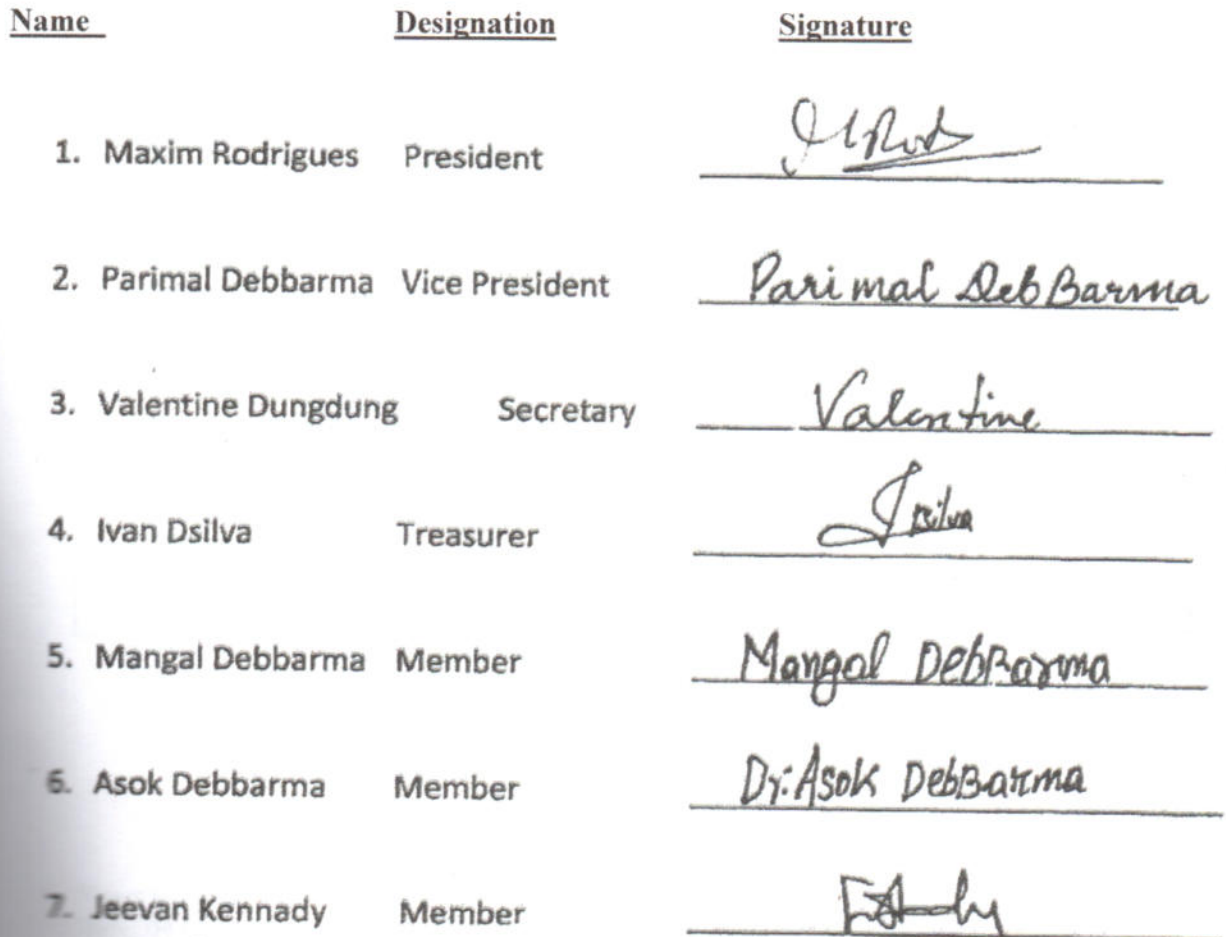 Name Designation Signature
1. Maxim Rodrigues President
2. Parimal Debbarma Vice President Parimal DebBarma
3. Valentine Dungdung Secretary Valentine
4. Ivan Dsilva Treasurer
5. Mangal Debbarma Member Mangal DebBarma
6. Asok Debbarma Member Dr: Asok DebBarma
7. Jeevan Kennady Member